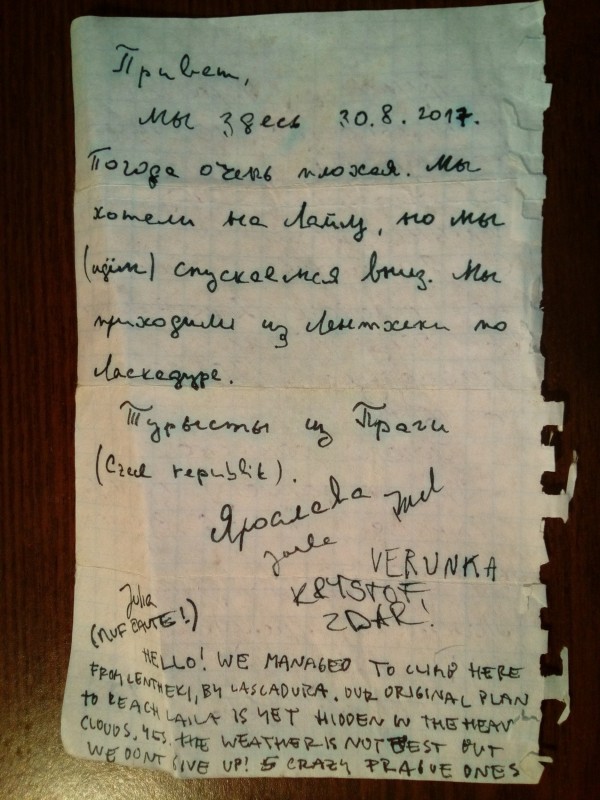 Привет,
мы здесь 30.8.2017.
Погода очень плохая. Мы
хотели на Лайлу, но мы
(идём) спускаемся вниз. Мы
приходили из Лентхеки по
Ласкадуре.
Турысты из Праги
(Czel republik).
Ярослава
VERUNKA
KRYSTOF
ZDAR!
Julia
HELLO! WE MANAGED TO CLIMB HERE
FROM LENTHEKI, BY LASCADURA. OUR ORIGINAL PLAN
TO REACH LAILA IS YET HIDDEN IN THE HEAVY
CLOUDS. YES. THE WEATHER IS NOT BEST BUT
WE DONT GIVE UP! 5 CRAZY PRAGUE ONES